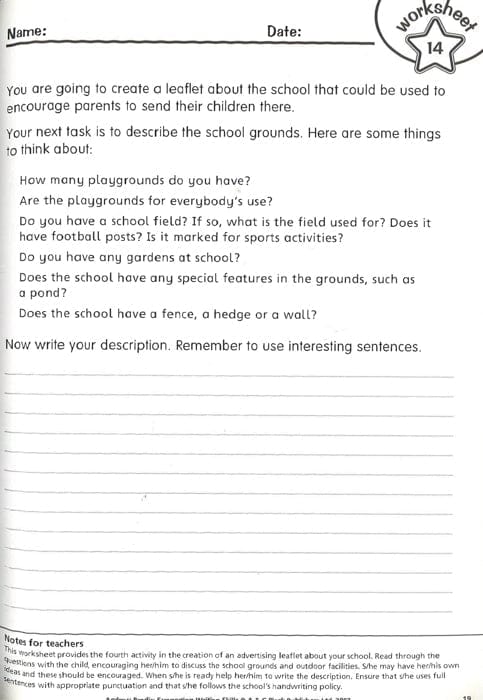 Name:
Date:
worksheet
14
You are going to create a leaflet about the school that could be used to
encourage parents to send their children there.
Your next task is to describe the school grounds. Here are some things
to think about:
How many playgrounds do you have?
Are the playgrounds for everybody's use?
Do you have a school field? If so, what is the field used for? Does it
have football posts? Is it marked for sports activities?
Do you have any gardens at school?
Does the school have any special features in the grounds, such as
a pond?
Does the school have a fence, a hedge or a wall?
Now write your description. Remember to use interesting sentences.
Notes for teachers
This worksheet provides the fourth activity in the creation of an advertising leaflet about your school. Read through the
questions with the child, encouraging her/him to discuss the school grounds and outdoor facilities. S/he may have her/his own
ideas and these should be encouraged. When s/he is ready help her/him to write the description. Ensure that s/he uses full
sentences with appropriate punctuation and that s/he follows the school's handwriting policy.